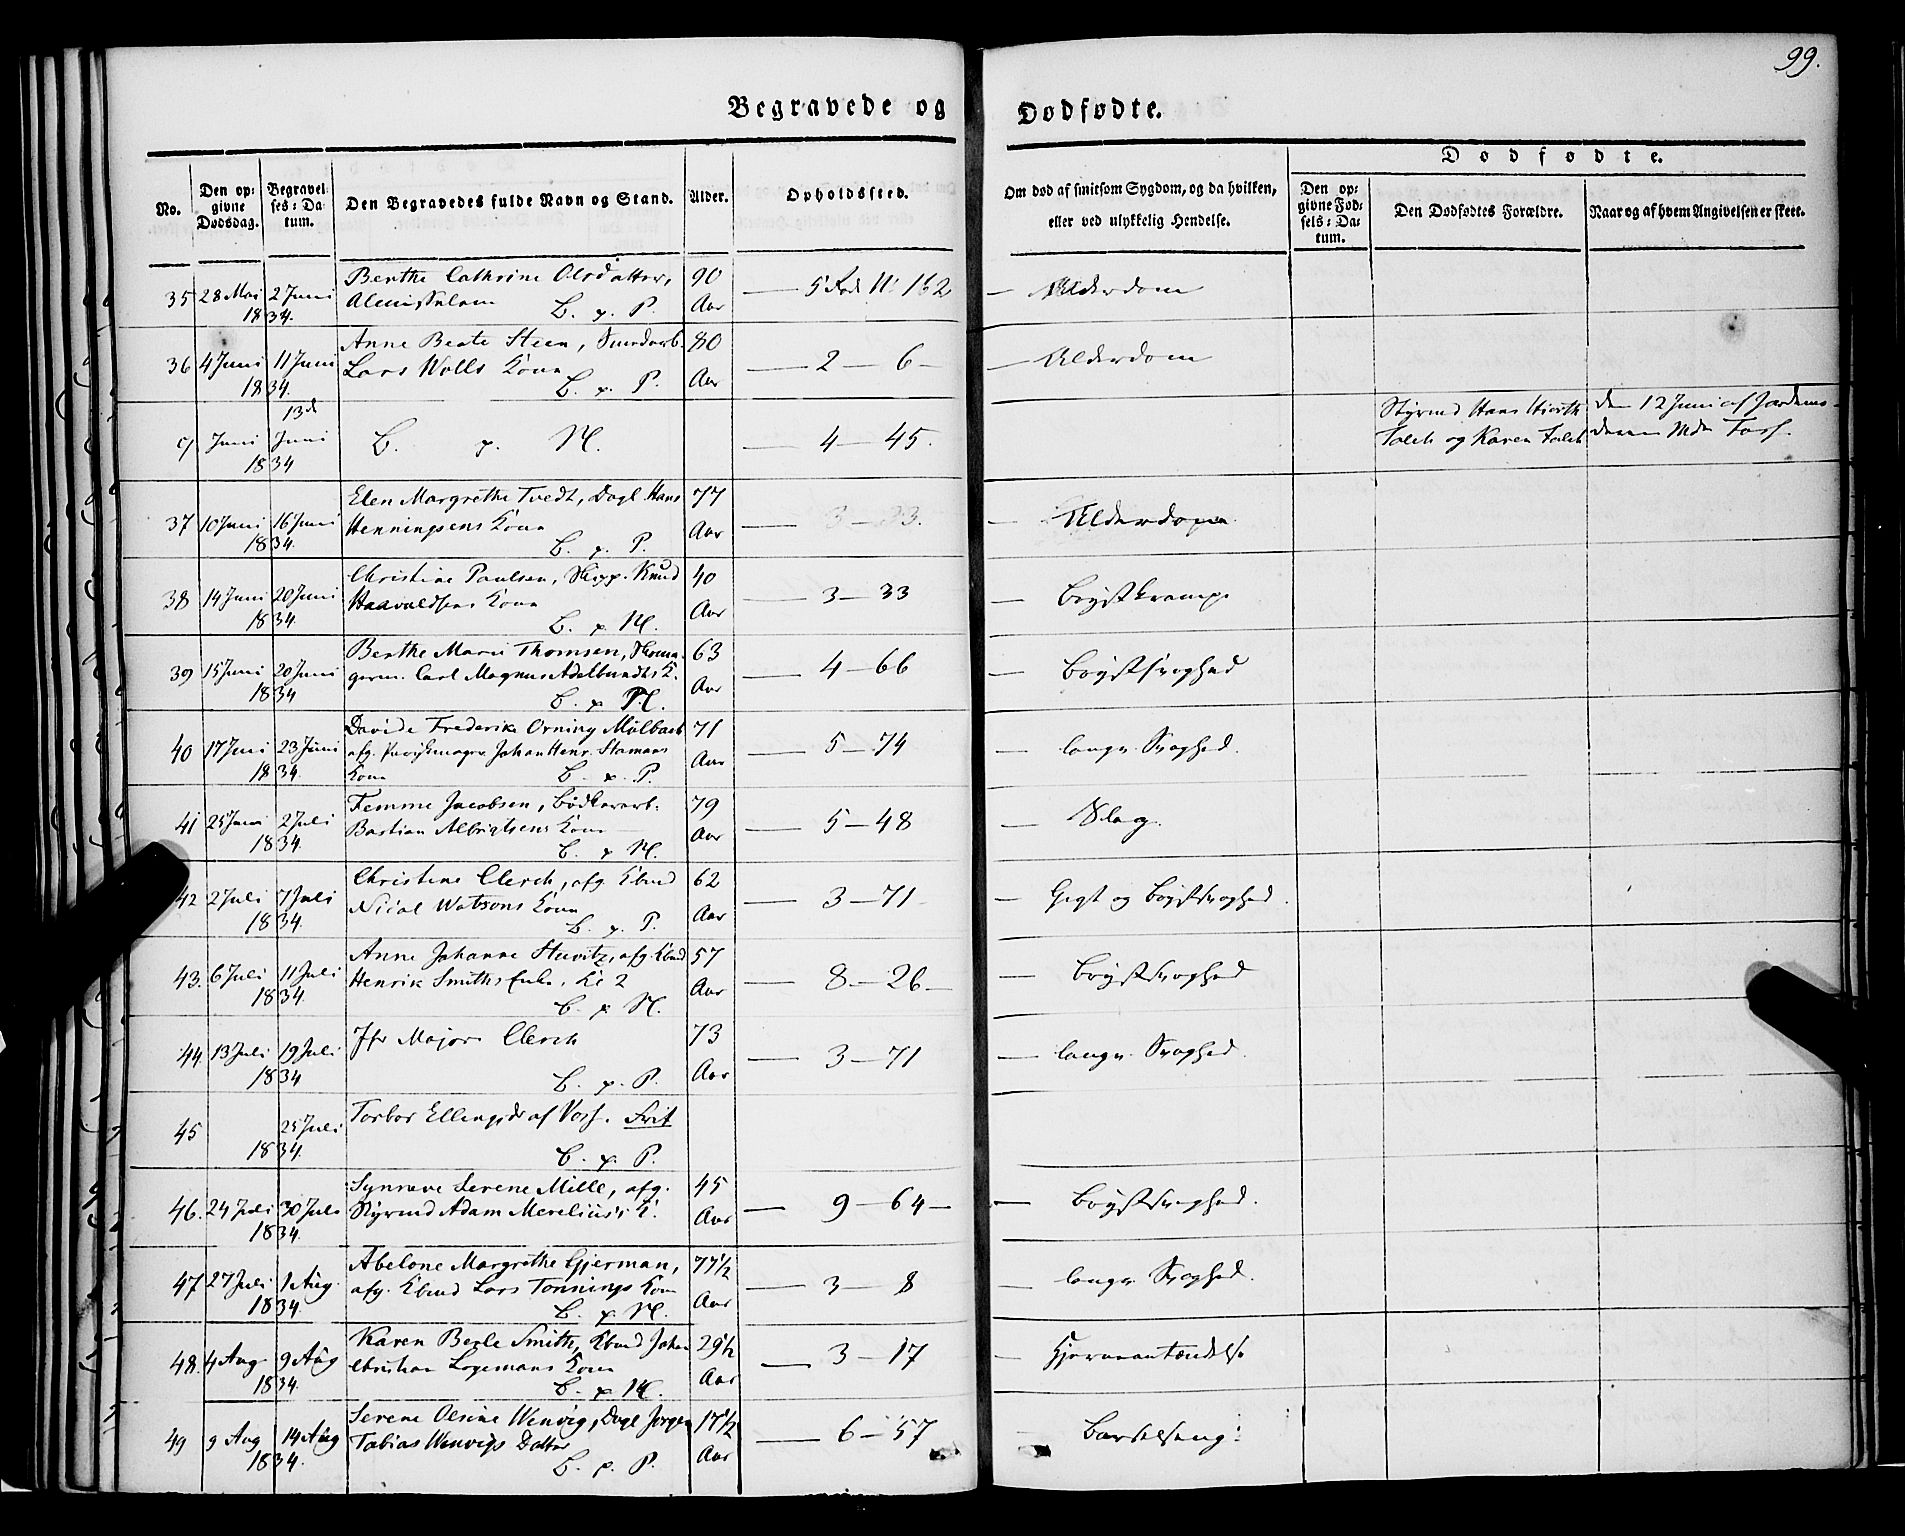 99.
Begravede og Dødfødte.
No.
Den opgivne Dødsdag.
Begravelses-Datum.
Den Begravedes fulde Navn og Stand.
Alder.
Opholdssted.
Om død af smitsom Sygdom, og da hvilken,
eller ved ulykkelig Hendelse.
Dødfødte.
Den opgivne Fødsels-Datum.
Den Dødfødtes Forældre.
Naar og af hvem Angivelsen er skeet.
35 28 Mai 2 Juni 1834. Berthe Cathrine Olsdatter, 90
Almisselem B. p. P. Aar — 5 Rode N 162 — Alderdom
36 4 Juni 11 Juni 1834. Anne Beate Steen, 80
Lars Wolls Kone B. p. P. Aar — 2 — 6 — Alderdom
Juni 13d Juni 1834 B. p. N. — 4 — 45. Styrmd Hans Hiorth den 12 Juni af
Falch og Karen Falch
37 10 Juni 16 Juni 1834. Elen Margrethe Tvedt, Dagl. Hans 77
Henningsens Kone B. p. P. Aar — 3 — 33. — Alderdom
38 14 Juni 20 Juni 1834. Christine Paulsen, Skipp. Knud 40
Haavaldsens Kone B. p. N. Aar — 3 — 33 — Brystkrampe
39 15 Juni 20 Juni 1834 Berthe Marie Thomsen, Skoma- 63
germ. Carl Magnus Adelbundts K. B. p. N. Aar — 4 — 66 — Brystsvaghed
40 17 Juni 23 Juni 1834. Davide Frederike Orning Mølbach 71
afg. Parykmager Johan Henr. Stamans
Kone B. p. P. Aar — 5 — 74 — langv. Svaghed.
41 25 Juni 2 Juli 1834. Femme Jacobsen, Bødkerarb. 79
Bastian Albrigtsens Kone B. p. N. Aar — 5 — 48 — Slag.
42 2 Juli 7 Juli 1834. Christine Clerck, afg. Kbmd 62
Nicol Watsons Kone B. p. P. Aar — 3 — 71 — Gigt og Brystsvaghed.
43. 6 Juli 11 Juli 1834. Anne Johanne Stuvitz, afg Kbmd 57
Henrik Smiths Enke, B. p. N. Aar — 8 — 26 — Brystsvaghed
44. 13 Juli 19 Juli 1834 Jfr Major Clerck 73
B. p. P. Aar — 3 — 71 — langv. Svaghed.
45 25 Juli 1834. Torbor Ellingsdr af Voss. Frit
B. p. P.
46. 24 Juli 30 Juli 1834. Synneve Serene Mille, afg. 45
Styrmd Adam Merelius's K. Aar — 9 — 64 — Brystsvaghed.
47 27 Juli 1 Aug. 1834. Abelone Margrethe Gjerman, 77½
afg. Kbmd Lars Tonnings Kone B. p. N. Aar — 3 — 8 — langv. Svaghed.
48. 4 Aug 9 Aug 1834. Karen Berle Smith, Kbmd Johan 29½
Christian Logemans Kone B. p. N. Aar — 3 — 17 — Hjernebetændelse
49 9 Aug 14 Aug 1834. Serene Olsine Wenvig, Dagl Jørgen 17½
Tobias Wenvigs Datter B. p. P. Aar — 6 — 57 Barselseng.